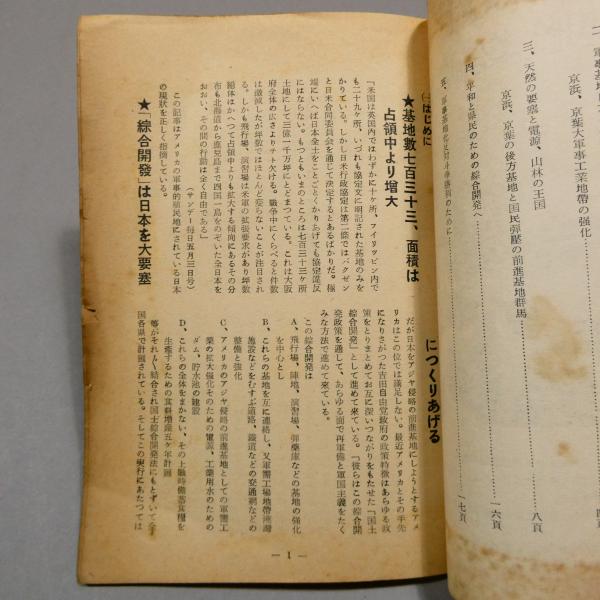 二、軍事基地
京浜、京葉大軍事工業地帶の強化
三、天然の要塞と電源、山林の王国
京浜、京葉の後方基地と国民彈壓の前進基地群馬……八頁
四、平和と県民のための綜合開発へ……一六頁
のために……一七頁
(一)はじめに
★基地數七百三十三、面積は
占領中より增大
「米国は英国内ではわずかに十ヶ所、フイリツピン内で
も二十九ヶ所、いづれも協定文に明記された基地のみを
かりている。しかし日米行政協定は第二條ではバクゼン
と日米合同委員会を通して決定するとあるばかりだ。極
端にいへば日本全土をことごとくかりあげても協定違反
にはならない。もつともいまのところは七百三十三ヶ所
土地にして三億一千万坪にとどまつている。これは大阪
府全体の広さよりチト欠ける。戰爭中にくらべると件数
は激減したが坪数ではほとんど変らないことが注目され
る。しかも飛行場、演習場は米軍の拡張要求があり坪数
総体はかへつて占領中よりも拡大する傾向にあるその分
布も北海道から鹿児島まで四国一島をのぞいた全日本を
おおい、その間の行動は全く自由である」
(サンデー每日五月三日号)
この記事はアメリカの軍事的植民地にされている日本
の現狀を正しく指摘している。
★「綜合開發」は日本を大要塞
につくりあげる
だが日本をアジヤ侵略の前進基地にしようとするアメ
リカはこの位では滿足しない。最近アメリカとその手先
になりさがつた吉田自由党政府の政策特徴はあらゆる政
策をとりまとめてお互に深いつながりをもたせた「国土
綜合開発」として進めて来ている。「彼らはこの綜合開
発政策を通して、あらゆる面で再軍備と軍国主義をたく
みな方法で進めて来ている。
この綜合開発は
A、飛行場、陣地、演習場、弾藥庫などの基地の强化
を中心とし
B、これらの基地を互に連絡し、又軍需工場地帶港灣
施設などをむすぶ道路、鐵道などの交通網などの
整備と强化
C、アメリカのアジヤ侵略の前進基地としての軍需工
業の拡大强化そのための電源、工業用水のための
ダム、貯水池の建設
D、これらの全体をまかない、その上戰時備蓄食糧を
生產するための食料增產五ヶ年計画
等がそれ〲結合され国土綜合開発法にもとずいて全
国各県で計画されている。そしてその実行にあたつては
— 1 —